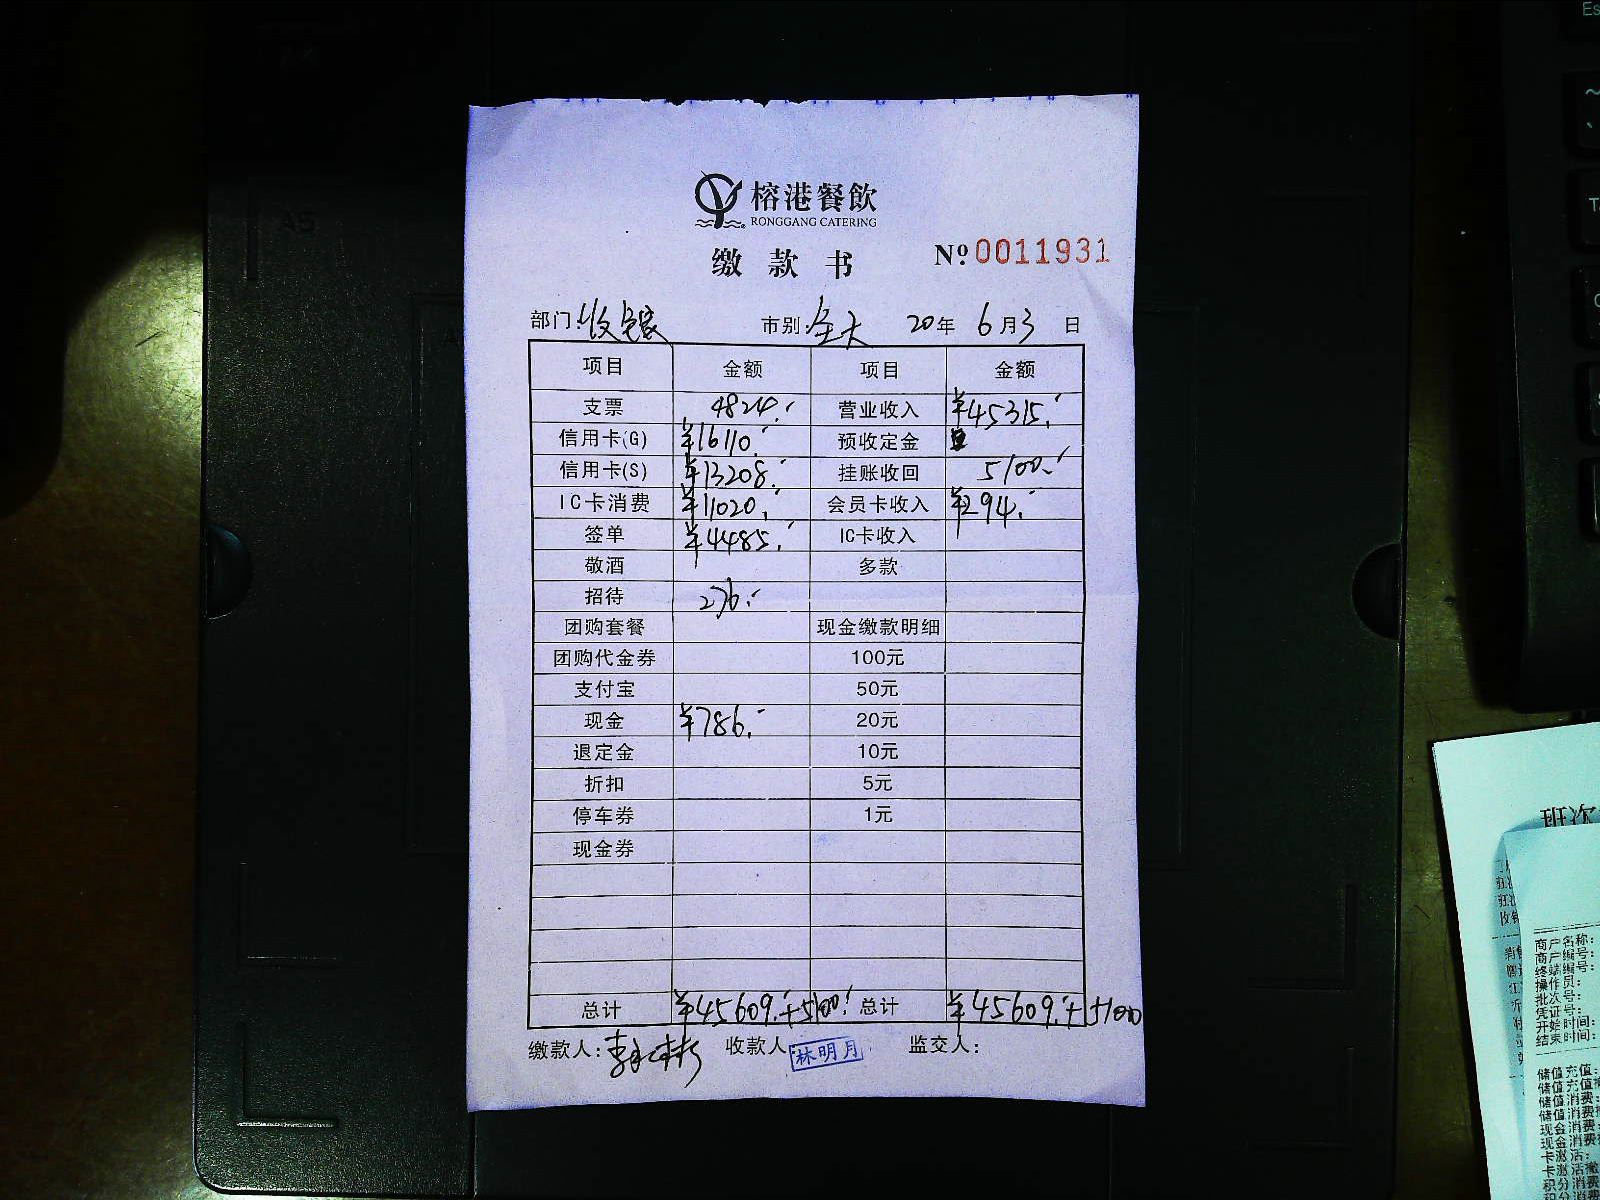 榕港餐飲
RONGGANG CATERING
缴款书 №0011931
部门 收银 市别 全天 20年 6月3日
项目 金额 项目 金额
支票 4824.- 营业收入 ¥45315.-
信用卡(G) ¥16110.- 预收定金
信用卡(S) ¥13208.- 挂账收回 5100.-
IC卡消费 ¥11020.- 会员卡收入 ¥294.-
签单 ¥4485.- IC卡收入
敬酒 多款
招待 276.-
团购套餐 现金缴款明细
团购代金券 100元
支付宝 50元
现金 ¥786.- 20元
退定金 10元
折扣 5元
停车券 1元
现金券
总计 ¥45609.-+5100.- 总计 ¥45609.-+5100
缴款人: 收款人: 林明月 监交人:
A5
Es
班次
商户名称:
商户编号:
终端编号:
操作员:
批次号:
凭证号:
开始时间:
结束时间:
储值充值:
储值充值
储值消费:
储值消费
现金消费:
现金消费
卡激活:
卡激活撤
积分消费